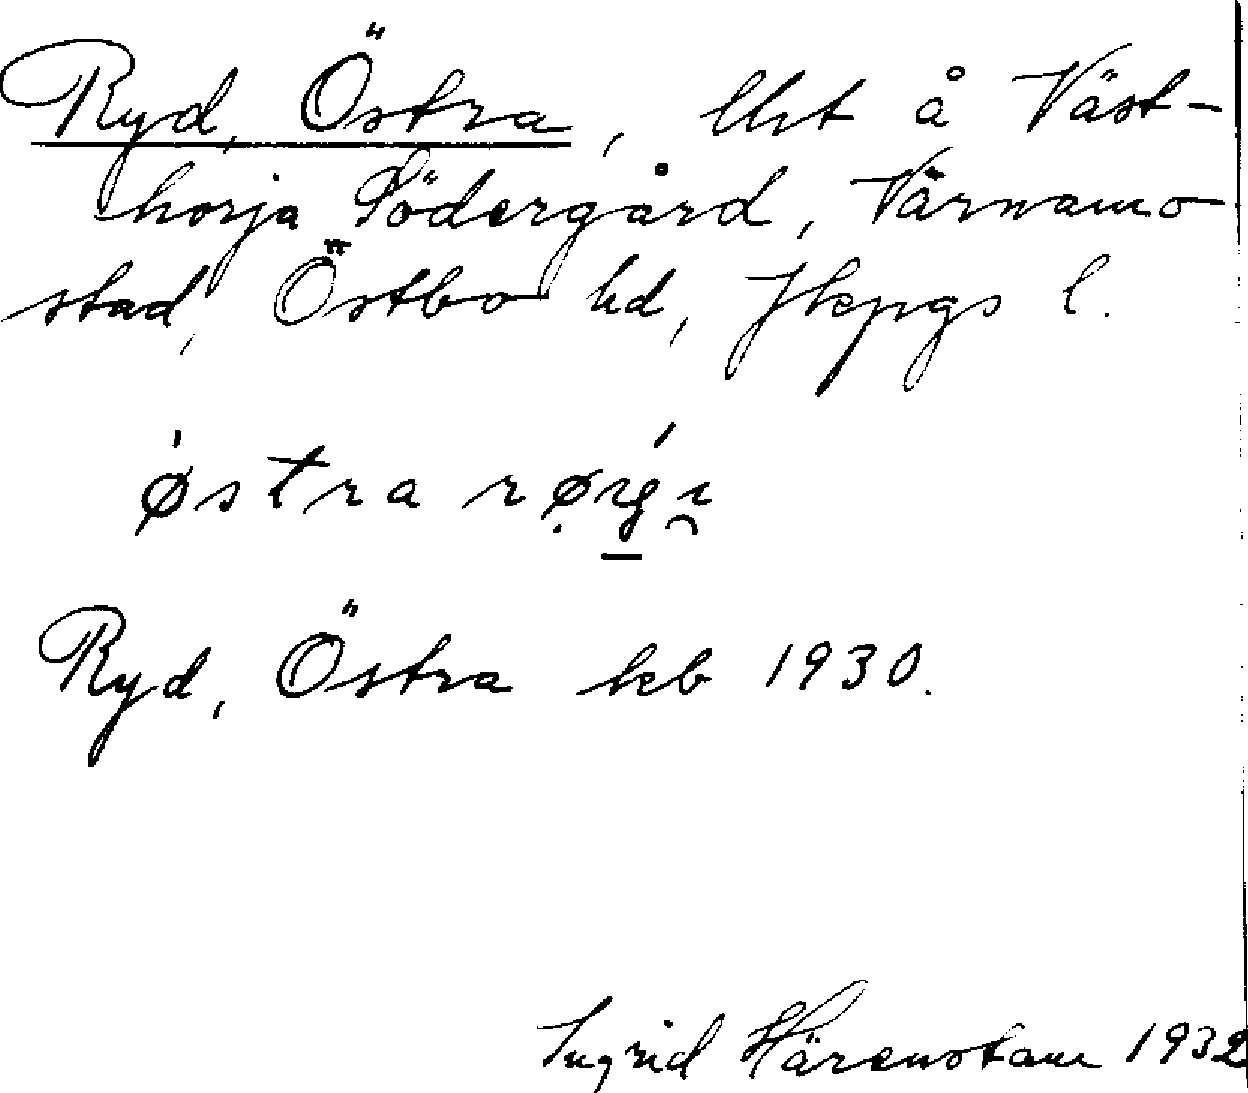 Ryd, Östra, lht å Väst-
horja Södergård, Värnamo
stad, Östbo hd, Jkpgs l.
östra
Ryd, Östra kb 1930.
Ingrid Härenstam 1932